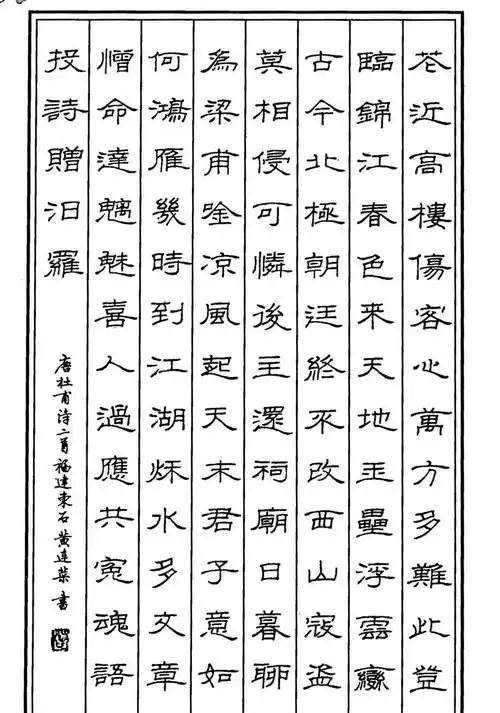 花近高樓傷客心萬方多難此登
臨錦江春色來天地玉壘浮雲變
古今北極朝廷終不改西山寇盜
莫相侵可憐後主還祠廟日暮聊
為梁甫吟凉風起天末君子意如
何鴻雁幾時到江湖秋水多文章
憎命達魑魅喜人過應共冤魂語
投詩贈汨羅
唐杜甫诗二首福建東石黄连葉書